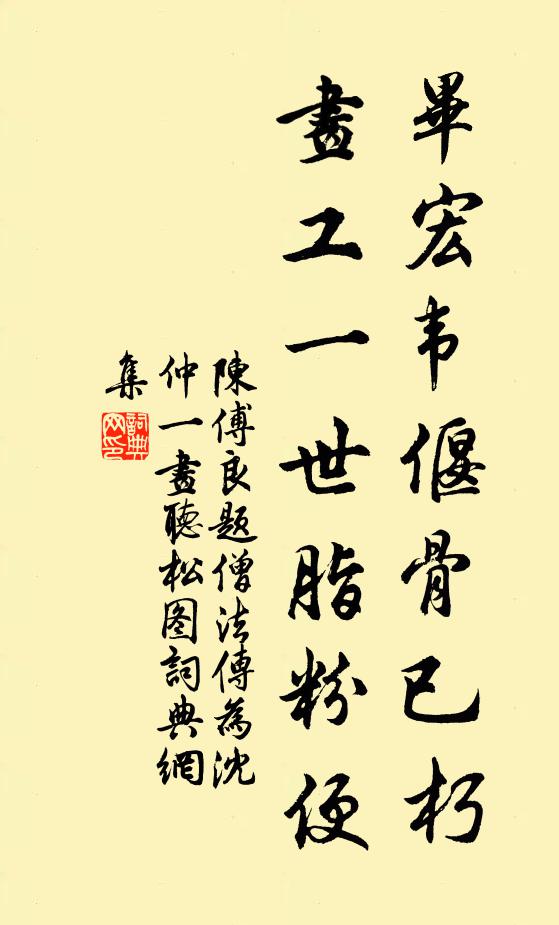 畢宏韦偃骨已朽
畫工一世脂粉便
陳傅良题僧法傳為沈
仲一畫聽松图詞典網
集
詞典
网印